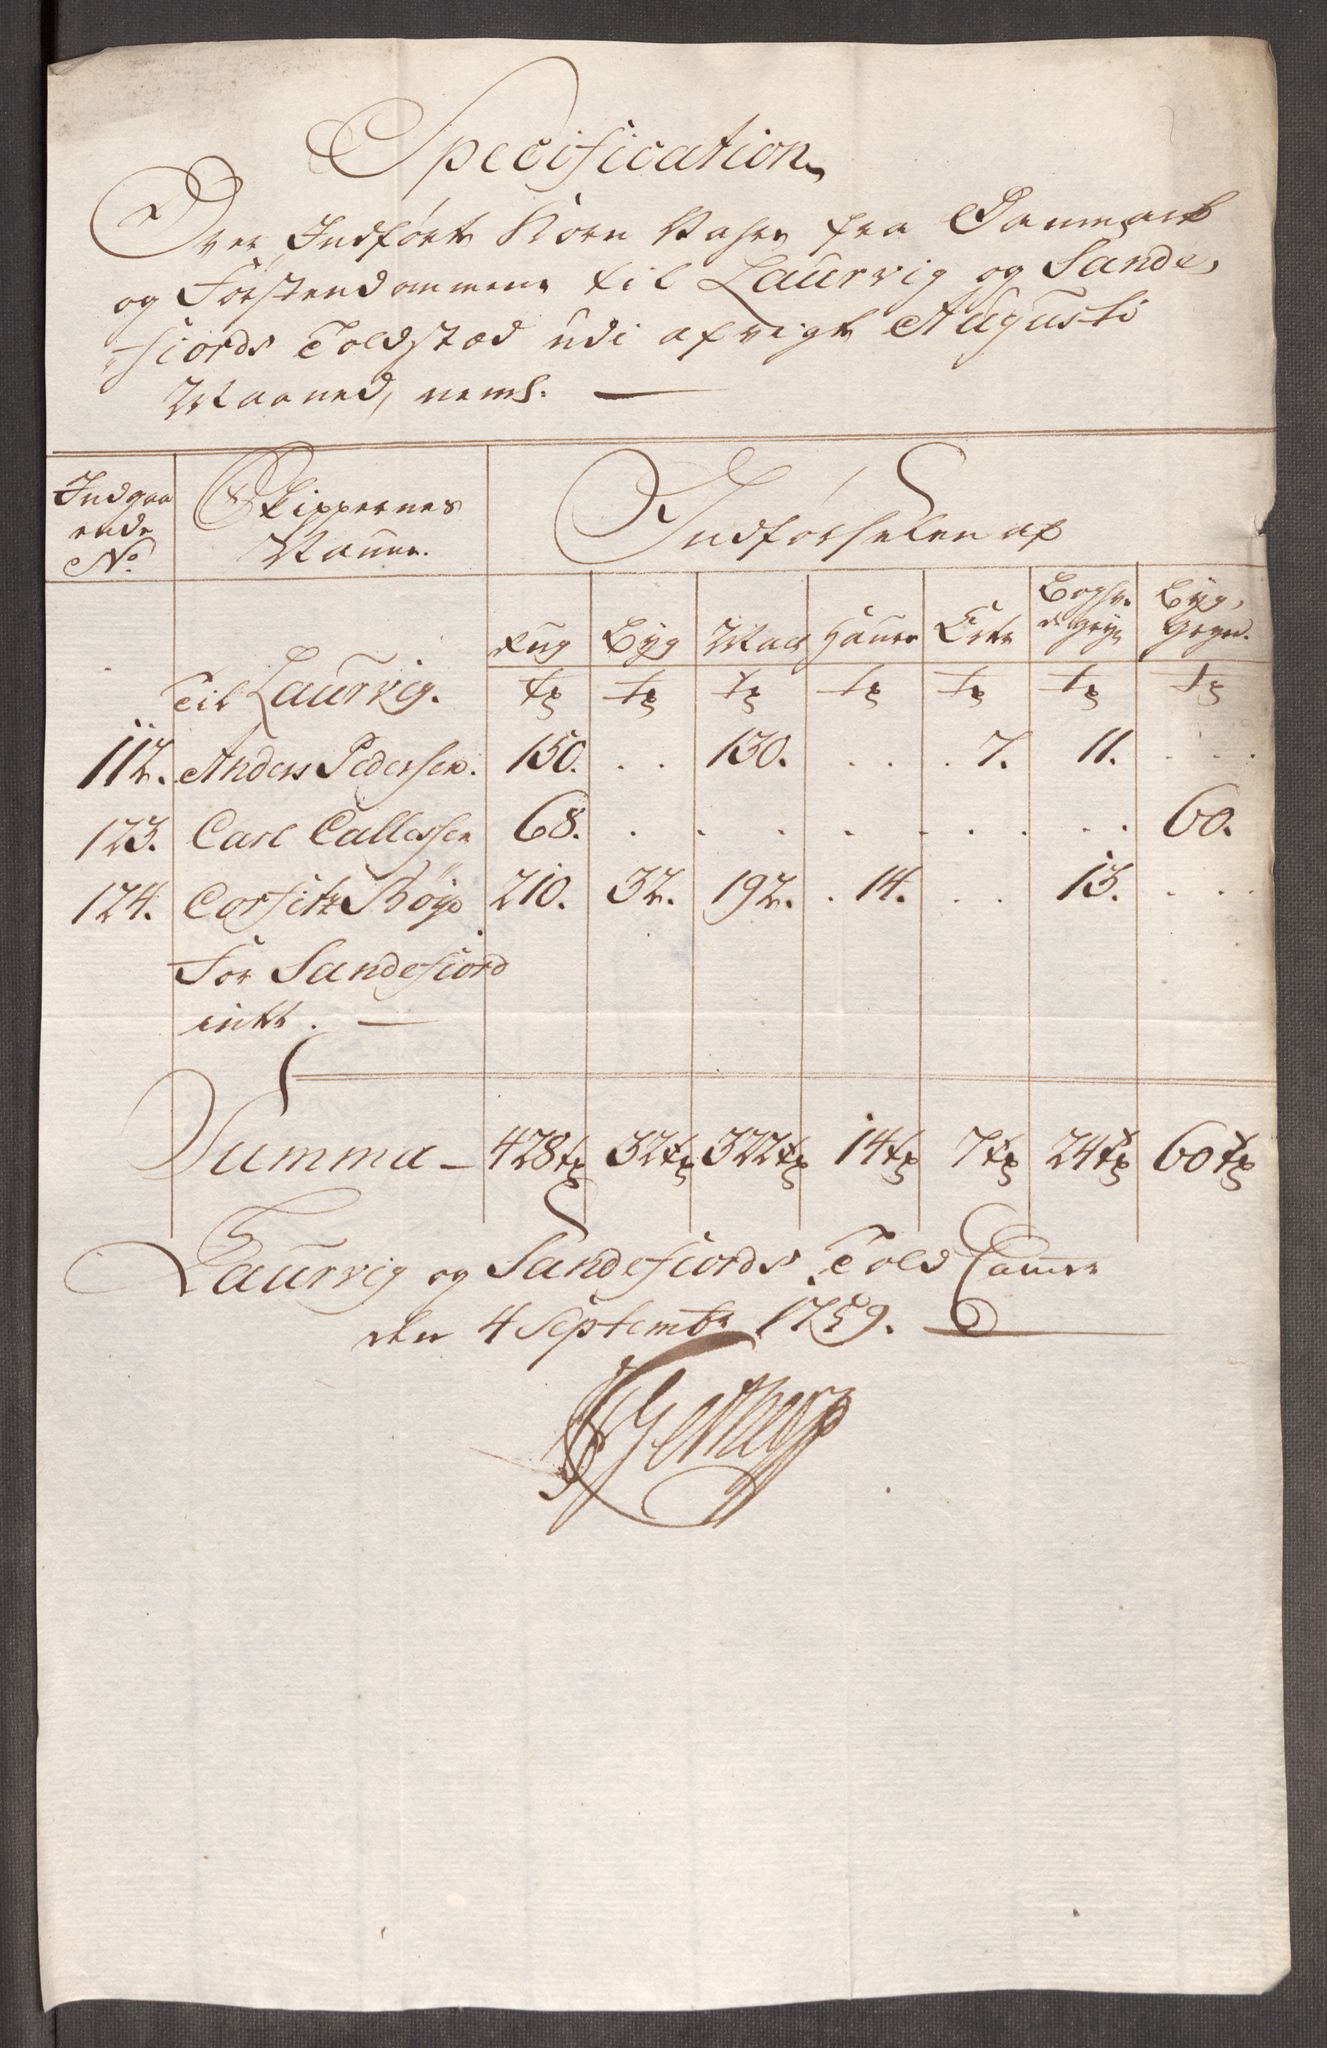 Specification
Over Indført Korn Vahre fra Danmark
og Førstendommene til Laurvig og Sande-
fiords Toldsted udi afvigte Augusti
Maaned, neml.
Indgaa Skippernes Indførselen af
ende Navne.
No
Rug Byg Malt Haure Erter Boghvede Gryn Byg Gryn.
Til Laurvig. tr tr tr tr tr tr tr
112. Anders Pedersen. 150. . . 130. . . . 7. 11. . . .
123. Carl Callessen 68. . . . . . . . . 60.
124. Corfitz Böye 210. 32. 192. . 14. . . 13. . . .
For Sandefiord
intet.
Summa 428 tr 32 tr 322 tr 14 tr 7 tr 24 tr 60 tr
Laurvig og Sandefiords Told Camer
den 4 Septembr 1759.